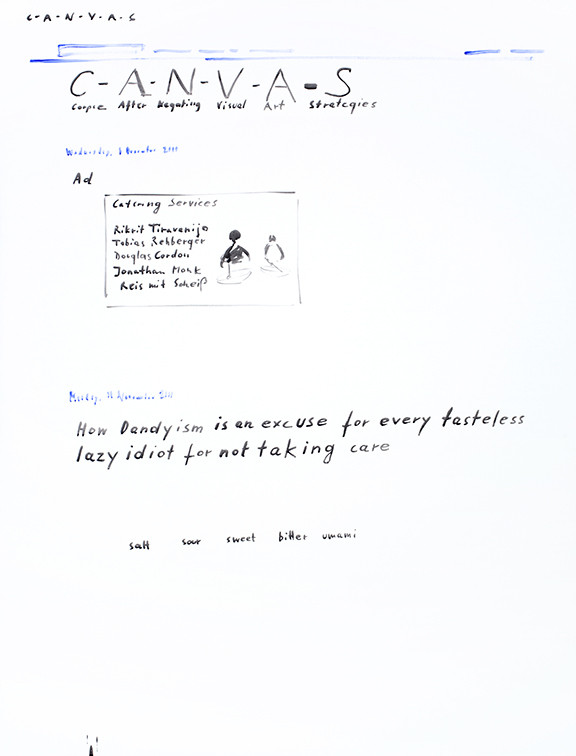 C-A-N-V-A-S
C-A-N-V-A-S
Corpse After Negating Visual Art Strategies
Wednesday, November 2011
Ad
Catering Services
Rikrit Tiravanija
Tobias Rehberger
Douglas Gordon
Jonathan Monk
Reis mit Scheiß
November 2011
How Dandyism is an excuse for every tasteless
lazy idiot for not taking care
salt sour sweet bitter umami